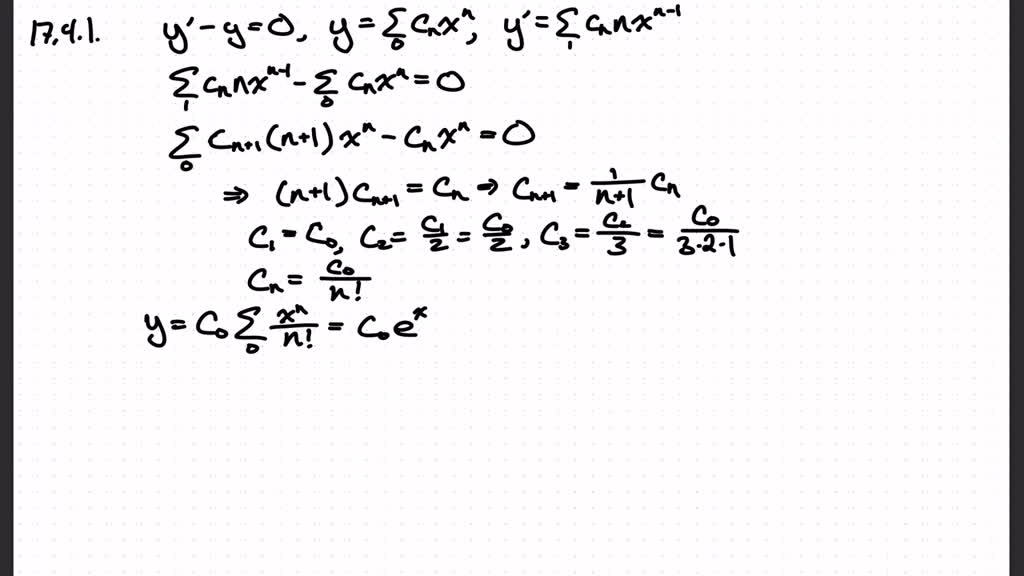 17.4.1. y' - y = 0, y = ∑₀ cₙxⁿ, y' = ∑₁ cₙnxⁿ⁻¹
∑₁ cₙnxⁿ⁻¹ - ∑₀ cₙxⁿ = 0
∑₀ cₙ₊₁(n+1)xⁿ - cₙxⁿ = 0
⇒ (n+1)cₙ₊₁ = cₙ ⇒ cₙ₊₁ = 1/(n+1) cₙ
c₁ = c₀, c₂ = c₁/2 = c₀/2, c₃ = c₂/3 = c₀/(3·2·1)
cₙ = c₀/n!
y = c₀ ∑₀ xⁿ/n! = c₀eˣ